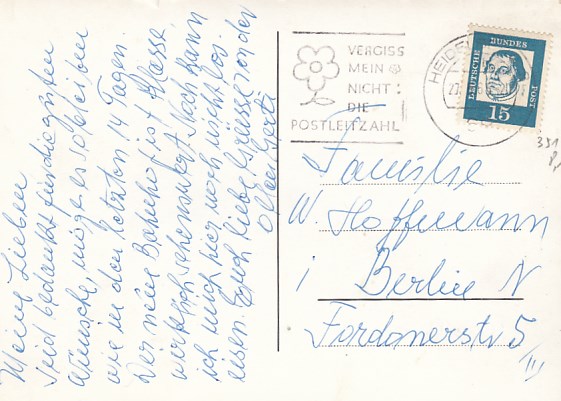 Meine Lieben
seid bedankt für die guten
Wünsche, möge es so bleiben
wie in den letzten 14 Tagen.
Der neue Bahnhof ist Klasse,
wirklich sehenswert. Noch kann
ich mich hier noch nicht los-
eisen. Euch liebe Grüsse von der
alten Gerti
VERGISS
MEIN
NICHT:
DIE
POSTLEITZAHL
HEIDE
DEUTSCHE BUNDES POST
15
351
Familie
W. Hoffmann
1 Berlin N
Fordonerstr 5